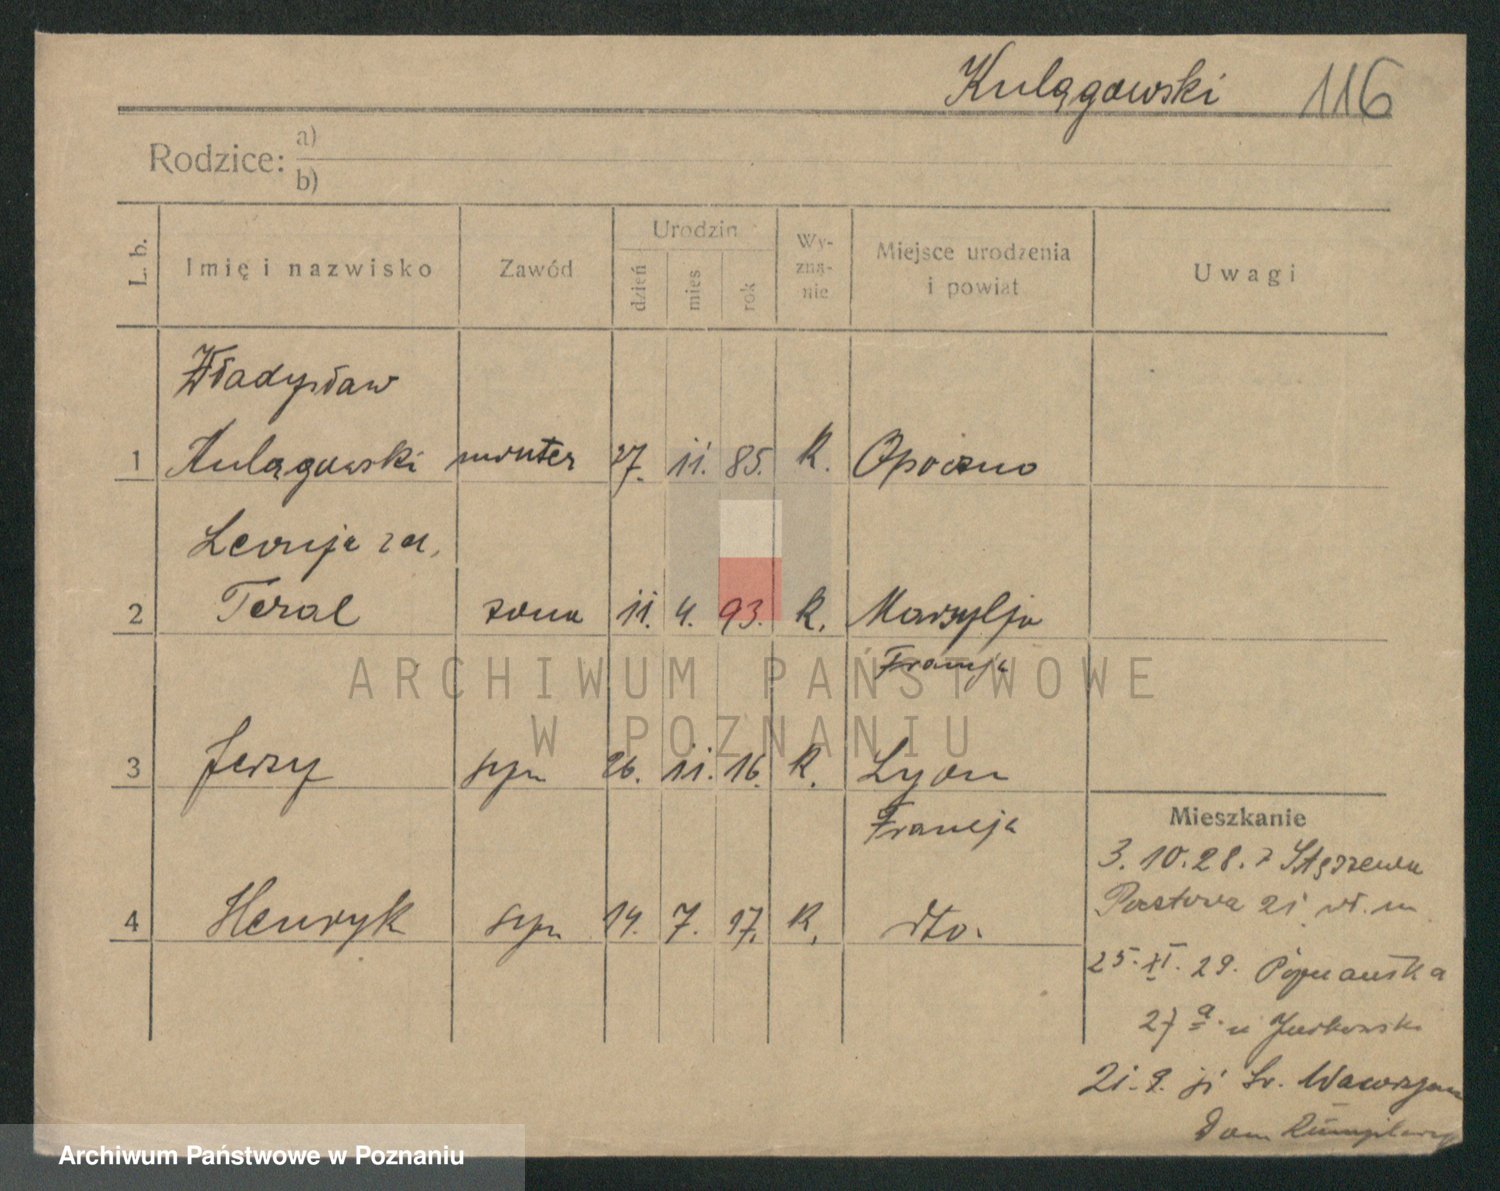 Kulągowski 116
Rodzice: a)
b)
L. b. Imię i nazwisko Zawód Urodzin dzień mies rok Wy-zna-nie Miejsce urodzenia i powiat Uwagi
Władysław
1 Kulągowski monter 27. 11. 85. k. Opoczno
Leonja
2 Teral żona 11. 4. 93. k. Marsylja
Francja
ARCHIWUM PAŃSTWOWE
W POZNANIU
3 Jerzy syn 26. 11. 16. k. Lyon
Francja
4 Henryk syn 14. 7. 17. k. dto.
Mieszkanie
3. 10. 28. z
Pocztowa 21
25. XI. 29. Poznańska
27 a u Jurkowski
21. 9. Św.
Dom
Archiwum Państwowe w Poznaniu